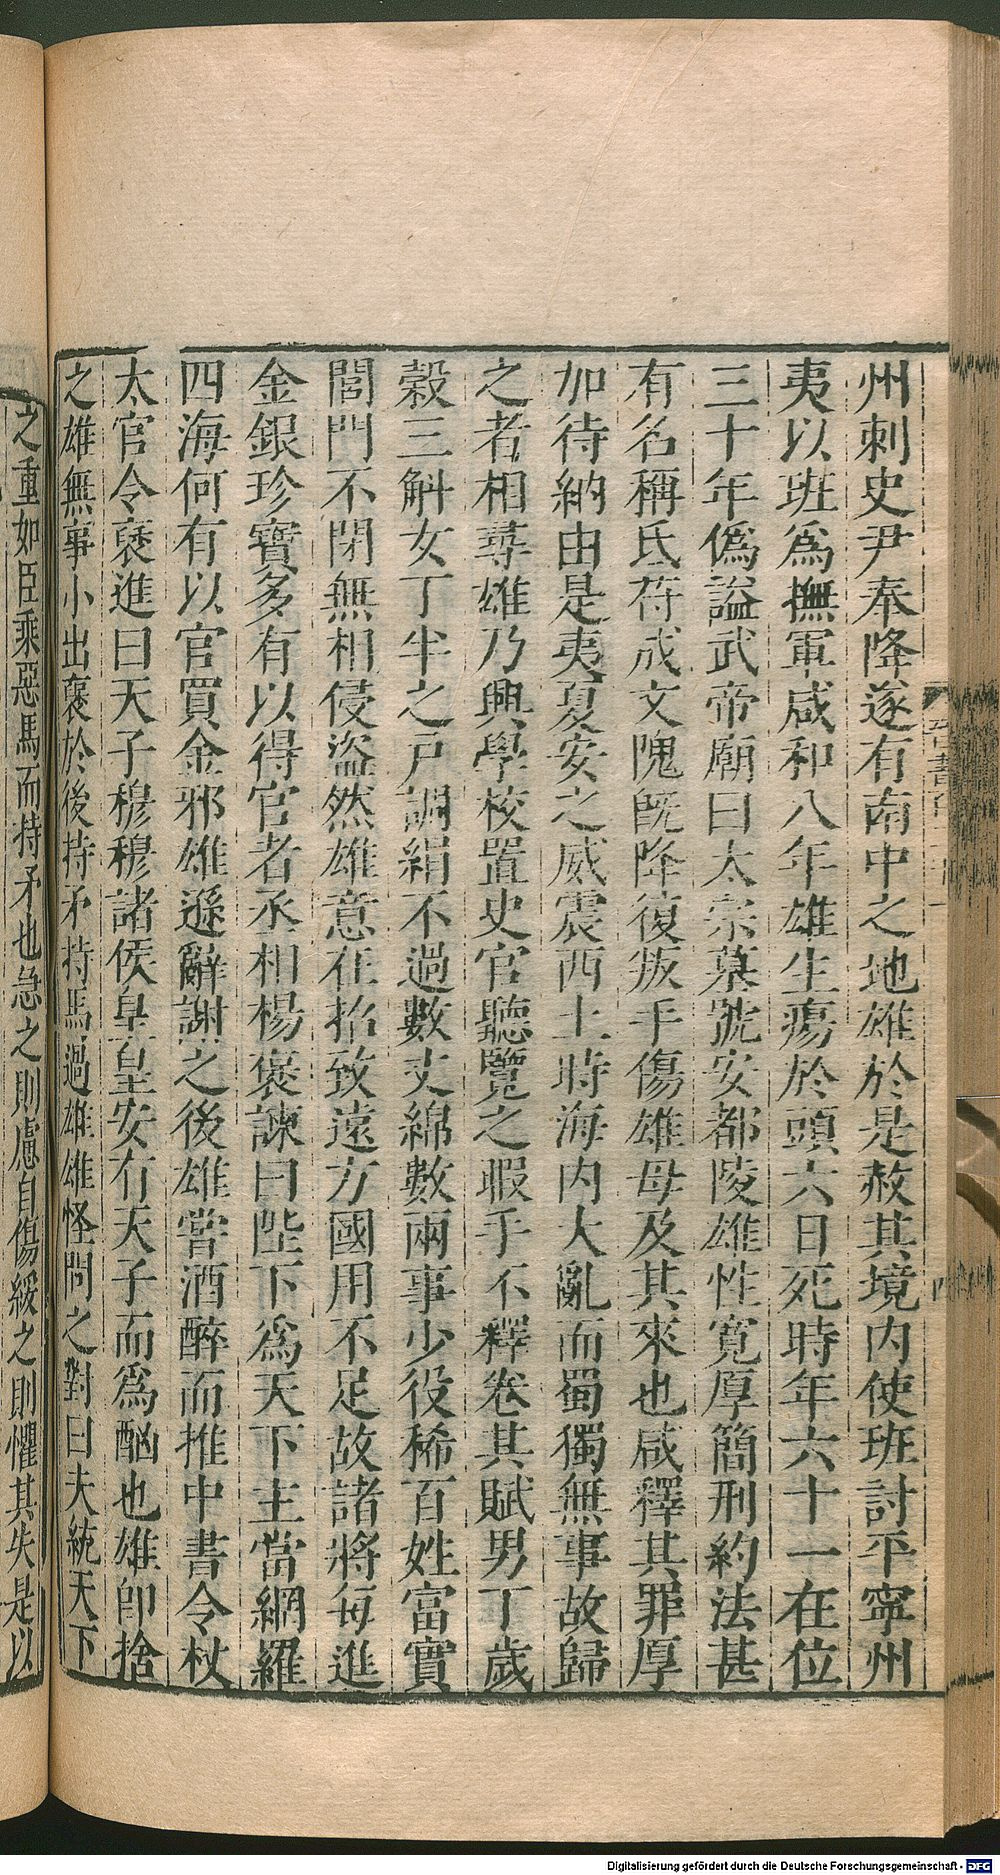 州刺史尹奉降遂有南中之地雄於是赦其境内使班討平寧州
夷以班爲撫軍咸和八年雄生瘍於頭六日死時年六十一在位
三十年僞謚武帝廟曰太宗墓號安都陵雄性寛厚簡刑約法甚
有名稱氐苻成文隗旣降復叛手傷雄母及其來也咸釋其罪厚
加待納由是夷夏安之威震西土時海内大亂而蜀獨無事故歸
之者相尋雄乃興學校置史官聽覽之暇手不釋卷其賦男丁歳
榖三斛女丁半之戸調絹不過數丈綿數兩事少役稀百姓富實
閭門不閉無相侵盜然雄意在招致遠方國用不足故諸將每進
金銀珍寶多有以得官者丞相楊褒諫曰陛下爲天下主當網羅
四海何有以官買金邪雄遜辭謝之後雄嘗酒醉而推中書令杖
太官令褒進曰天子穆穆諸侯皇皇安有天子而爲酗也雄卽捨
之雄無事小出褒於後持矛持馬過雄雄怪問之對曰夫統天下
之重如臣乘惡馬而持矛也急之則慮自傷緩之則懼其失是以
Digitalisierung gefördert durch die Deutsche Forschungsgemeinschaft - DFG